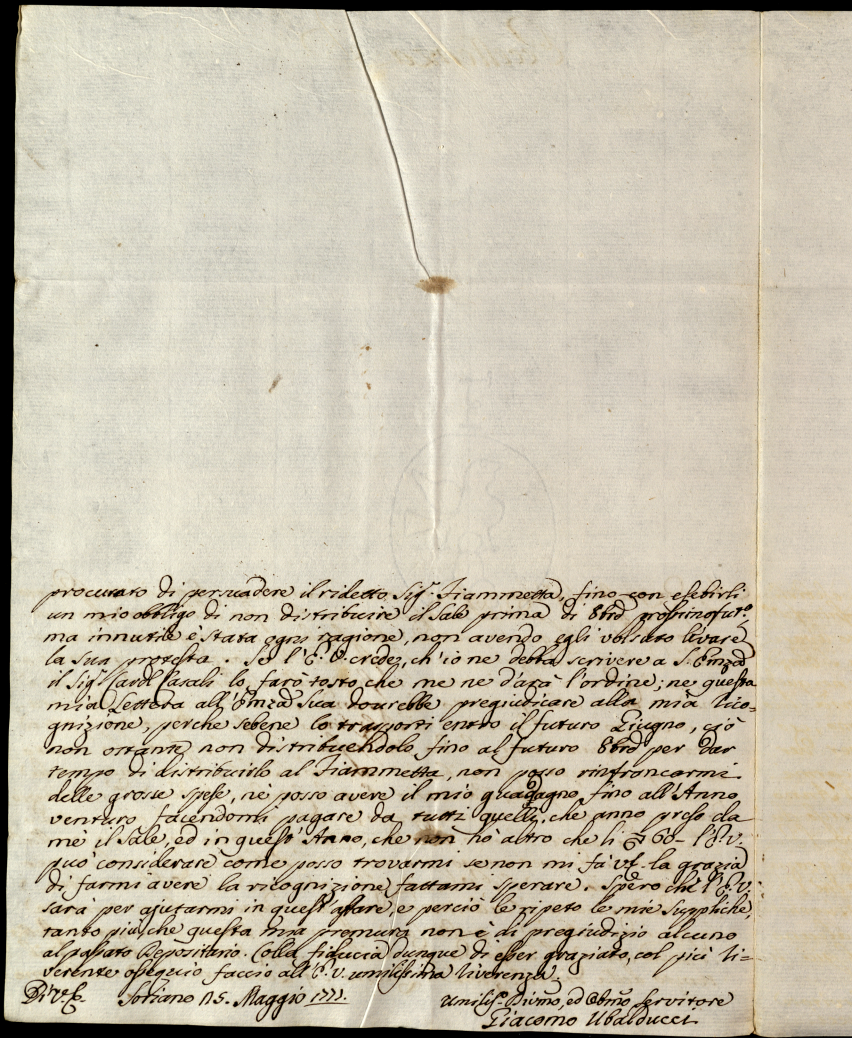 procurato di persuadere il ridetto Sig.r Fiammetta, fino con esebirli
un mio obbligo di non distribuire il Sale prima di 8bre prossimo fut.o
ma innutile è stata ogni ragione, non avendo egli volsuto livare
la sua protesta. Se l'E.V. crede, ch'io ne debba scrivere a S. Emza
il Sig.r Card.l Casali lo farò tosto che me ne darà l'ordine; ne questa
mia Lettera all'Emza Sua dourebbe pregiudicare alla mia rico=
gnizione, perche sebene lo trasporti entro il futuro Giugno, ciò
non ostante non distribuendolo fino al futuro 8bre per dar
tempo di distribuirlo al Fiammetta, non posso rinfroncarmi
delle grosse spese, nè posso avere il mio guadagno fino all'Anno
venturo facendomi pagare da tutti quelli, che anno preso da
mè il Sale, ed in quest'Anno, che non hò altro che li 60- l'E.V.
può considerare come posso trovarmi se non mi fà la grazia
di farmi avere la ricognizione fattami sperare. Spero che l'E.V.
sarà per ajutarmi in quest'affare, e perciò le ripeto le mie Suppliche,
tanto più che questa mia premura non è di pregiudizio alcuno
al passato Depositario. Colla fiducia dunque di esser graziato, col più ri=
verente ossequio faccio all'E.V. umilissima riverenza.
Di V.E. Soriano 15. Maggio 1771. Umiliss.o Divmo, ed Obmo Servitore
Giacomo Ubalducci